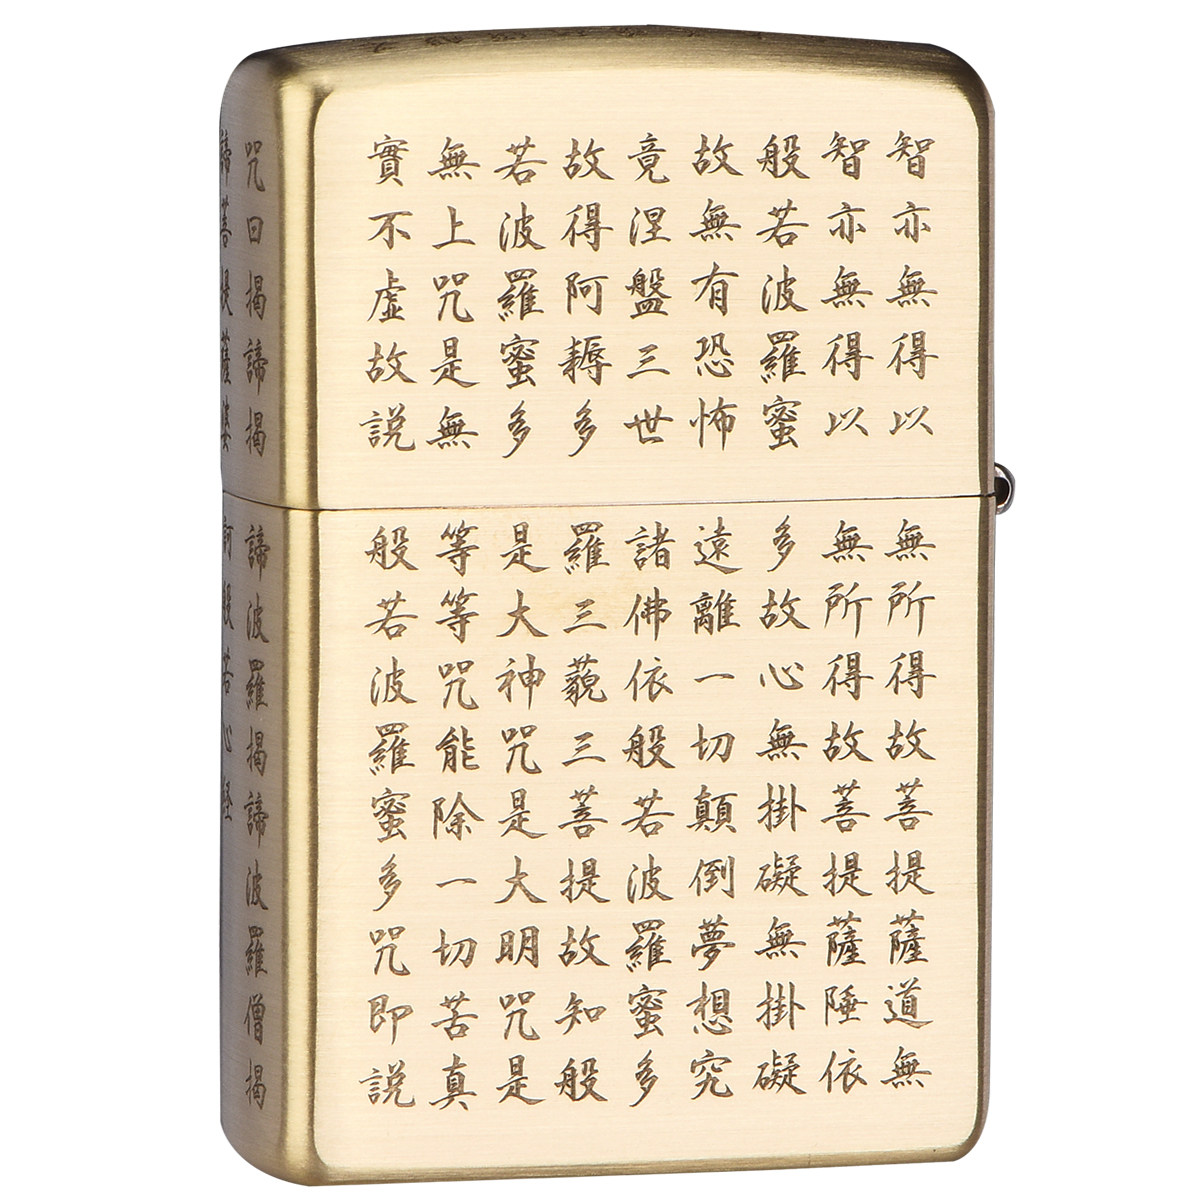 智亦無得以無所得故菩提薩道無
智亦無得以無所得故菩提薩陲依
般若波羅蜜多故心無掛礙無掛礙
故無有恐怖遠離一切顛倒夢想究
竟涅盤三世諸佛依般若波羅蜜多
故得阿耨多羅三藐三菩提故知般
若波羅蜜多是大神咒是大明咒是
無上咒是無等等咒能除一切苦真
實不虛故說般若波羅蜜多咒即說
咒曰揭諦揭諦波羅揭諦波羅僧揭
諦菩提薩婆訶般若心経